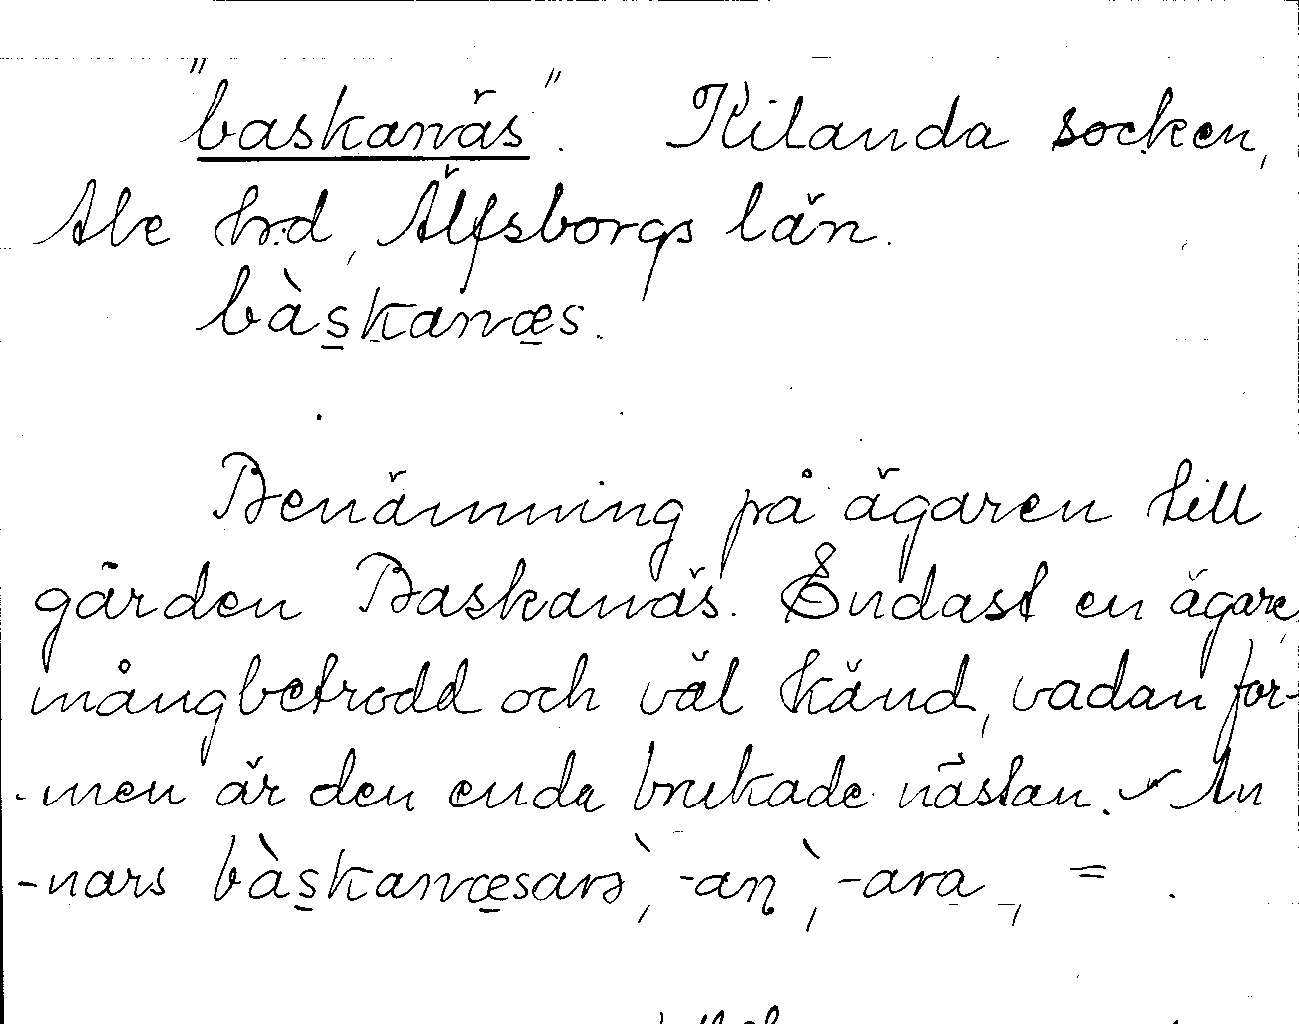 "baskanäs". Kilanda socken,
Ale hrd, Älfsborgs län.
bàskanæs.
Benämning på ägaren till
gården Baskanäs. Endast en ägare,
mångbetrodd och väl känd, vadan for-
-men är den enda brukade nästan. An
-nars bàskanæsarə̀, -aṇ̀, -ara, = .